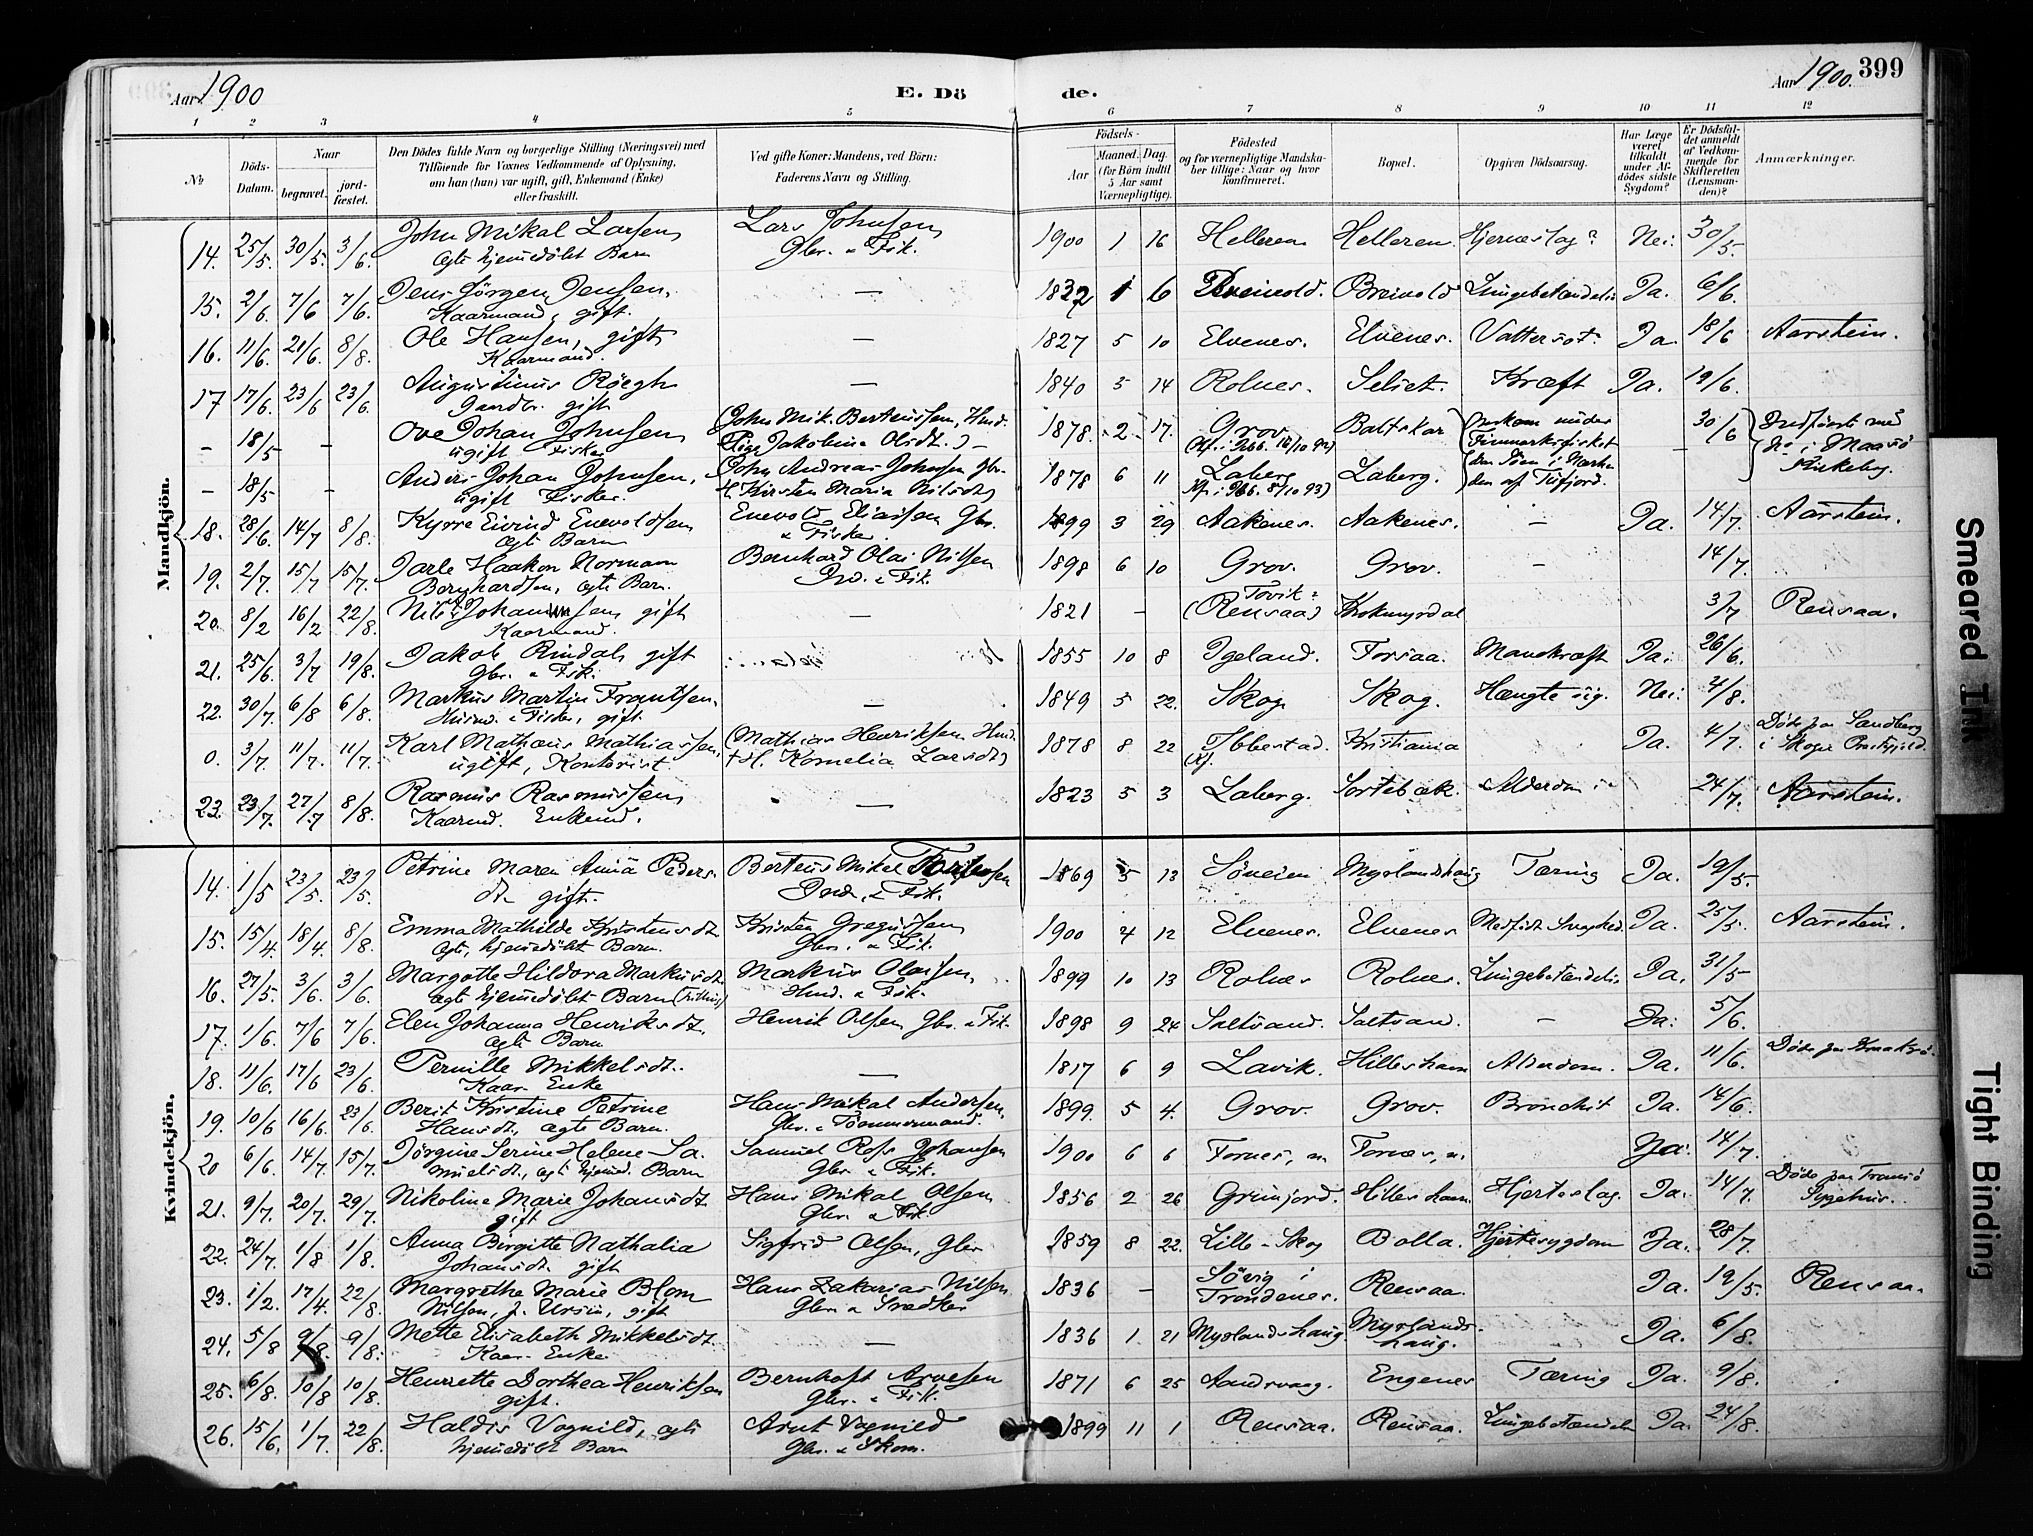 Aar 1900
E. Dö
de.
Aar 1900. 399
1 2 3 4 5 6 7 8 9 10 11 12
№
Döds-Datum.
Naar
begravet.
jord-fæstet.
Den Dödes fulde Navn og borgerlige Stilling (Næringsvei) med
Tilföiende for Voxnes Vedkommende af Oplysning,
om han (hun) var ugift, gift, Enkemand (Enke)
eller fraskilt.
Ved gifte Koner: Mandens, ved Börn:
Faderens Navn og Stilling.
Födsels-
Aar
Maaned. Dag.
(for Börn indtil
5 Aar samt
Værnepligtige).
Födested
og for værnepligtige Mandska-
ber tillige: Naar og hvor
konfirmeret.
Bopæl.
Opgiven Dödsaarsag.
Har Læge
været
tilkaldt
under Af-
dödes sidste
Sygdom?
Er Dödsfal-
det anmeldt
af Vedkom-
mende for
Skifteretten
(Lensman-
den)?
Anmærkninger.
Mandkjön.
14. 25/5. 30/5. 3/6. John Mikal Larsen Lars Johnsen 1900 1 16 Helleren Helleren Hjerneslag? Nei: 30/5.
ægte hjemmedöbt Barn Gbr. & Fisk.
15. 2/6. 7/6 7/6. Jens Jörgen Jensen, — 1832 1 6 Breivold. Breivold Lungebetændelse Ja. 6/6.
Kaarmand, gift.
16. 11/6. 21/6. 8/8. Ole Hansen, gift — 1827 5 10 Elvenes. Elvenes. Vattersot? Ja. 18/6 Aarstein.
Kaarmand.
17 17/6. 23/6 23/6. Augustinus Röegh — 1840 5 14 Rolnes. Selset. Kræft Ja. 19/6.
Gaardbr. gift
– 18/5 – Ove Johan Johnsen (John Mik. Berteussen, Hmd. 1878. 2 17. Grov Baltskar Omkom under 30/6
ugift Fisker Pige Jakobina Olsdt.) Finmarksfisket
– 18/5 – Anders Johan Johnsen, John Andreas Johnsen Gbr. 1878 6 11 Laberg Laberg.
ugift Fisker. H. Kirsten Maria Nilsdt)
18. 28/6. 14/7 8/8. Kyrre Eivind Enevoldsen Enevold Eliassen Gbr. 1899 3 29 Aakenes. Aakenes. — Ja. 14/7. Aarstein.
ægte Barn & Fisker
19. 2/7. 15/7 15/7. Jarle Haakon Normann Bernhard Olai Nilsen 1898 6 10 Grov. Grov. – 14/7.
Bernhardsen, ægte Barn.
20. 8/2 16/2 22/8. Nils Johansen gift — 1821 – Tovik? (Rensaa) Krokmyrdal 3/7 Rensaa.
Kaarmand.
21. 25/6. 3/7 19/8. Jakob Rindahl gift 1855 10 8 Igeland. Forsaa. Mavekræft Ja: 26/6.
Gbr. & Fisk.
22. 30/7. 6/8 6/8. Markus Martin Frantsen. — 1849 5 22. Skog Skog. Hængte sig. Nei: 4/8.
Husmd. & Fisker, gift.
0. 3/7. 11/7. 11/7. Karl Mathæus Mathiassen, (Mathias Henriksen Hmd. 1878 8 22 Ibbestad. Kristiania Ja. 4/7. Döde paa Sandberg
ugift, Kontorist. H. Kornelia Larsdt)
23. 23/7. 27/7 8/8. Rasmus Rasmussen — 1823 5 3 Laberg. Sortebæk. Alderdom 24/7. Aarstein.
Kaarmd. Enkemd.
Kvindekjön.
14. 1/5 23/5. 23/5. Petrine Maren Anna Peders- Berteus Mikal 1869 5 13 Söveien Myrlandshaug Tæring Ja. 19/5.
dtr gift. & Fisk.
15. 15/4. 18/4 8/8. Emma Mathilde Kristensdt. Kristen Gregussen 1900 4 12 Elvenes. Elvenes Medfödt Svaghed Ja. 25/5. Aarstein.
ægte, hjemmedöbt Barn. Gbr. & Fisk.
16. 27/5. 3/6. 3/6. Margothe Hildora Markusdt. Markus Olaisen 1899 10 13 Rolnes Rolnes. Lungebetændelse Ja. 31/5
ægte hjemmedöbt Barn (Tvilling) Hmd. & Fisk.
17. 1/6. 7/6 7/6. Elen Johanna Henriksdt. Henrik Olsen Gbr. & Fisk. 1898 9 24 Saltvand. Saltvand. – Ja: 5/6.
ægte Barn
18. 11/6. 17/6 23/6. Pernille Mikkelsdt. — 1817 6 9 Lavik. Hillesham Alderdom. Ja. 11/6.
Kaar-Enke
19. 10/6 16/6. 23/6. Berit Kristine Petrine Hans Mikal Andersen, 1899. 5 4. Grov. Grov. Bronchit Ja. 14/6.
Hansdt, ægte Barn. Gbr. & Tömmermand.
20 6/6. 14/7. 15/7. Jörgine Serine Helene Sa- Samuel Johansen 1900 6 6 Fornes, n. Fornes, n. Ja: 14/7.
muelsdt, ægte hjemmed. Barn Gbr. & Fisk.
21. 9/7. 20/7. 29/7. Nikoline Marie Johansdt. Hans Mikal Olsen 1856 2 26 Grimfjord. Hilleshamn Hjerteslag. Ja. 14/7. Döde paa Tromsö
gift Gbr. & Fisk Sygehus.
22. 24/7. 1/8 1/8. Anna Birgitte Nathalia Sigfrid Olsen, Gbr. 1859 8 22. Lille-Skog Bolla. Hjertesygdom Ja. 28/7.
Johansdt. gift
23. 1/2. 17/4. 22/8. Margrethe Marie Blom Hans Zakarias Nilsen 1836 – Sövig i Trondenes. Rensaa. Ja. 19/5. Rensaa.
Nilsen, f. Ursin, gift Gbr. & Snedker
24. 5/8 9/8. 9/8. Mette Elisabeth Mikkelsdt. — 1836 1. 21 Myrlandshaug Myrlands-haug. Ja. 6/8.
Kaar-Enke
25. 6/8. 10/8 10/8. Henrette Dorthea Henriksen Bernhoft Arvesen 1871 6 25 Aandervaag. Engenes Tæring Ja. 9/8.
gift. Gbr. & Fisk.
26. 15/6. 1/7. 22/8. Haldis Vognild, ægte Arnt Vognild 1899 11 1 Rensaa. Rensaa. Lungebetændelse Ja. 24/8.
hjemmedöbt Barn Gbr. & Skom.
Smeared Ink
Tight Binding